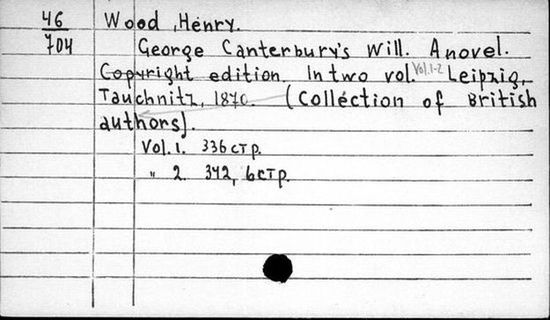 46 Wood, Henry.
704 George Canterbury's Will. A novel.
Copyright edition. In two vol. Vol.1-2 Leipzig,
Tauchnitz, 1870. (Collection of British
authors).
Vol. 1. 336 стр.
" 2. 342, 6 стр.